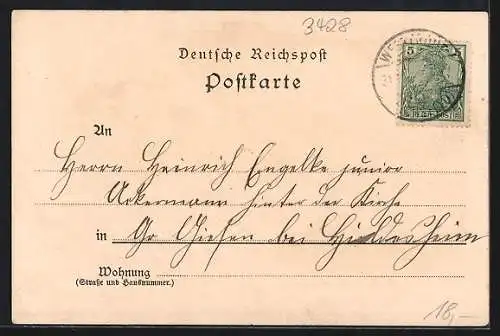 3428
Deutsche Reichspost
Postkarte
5 5
An
Herrn Heinrich Engelke junior
Ackermann hinter der Kirche
in Gr Giesen bei Hildesheim
Wohnung
(Straße und Hausnummer.)
18,-